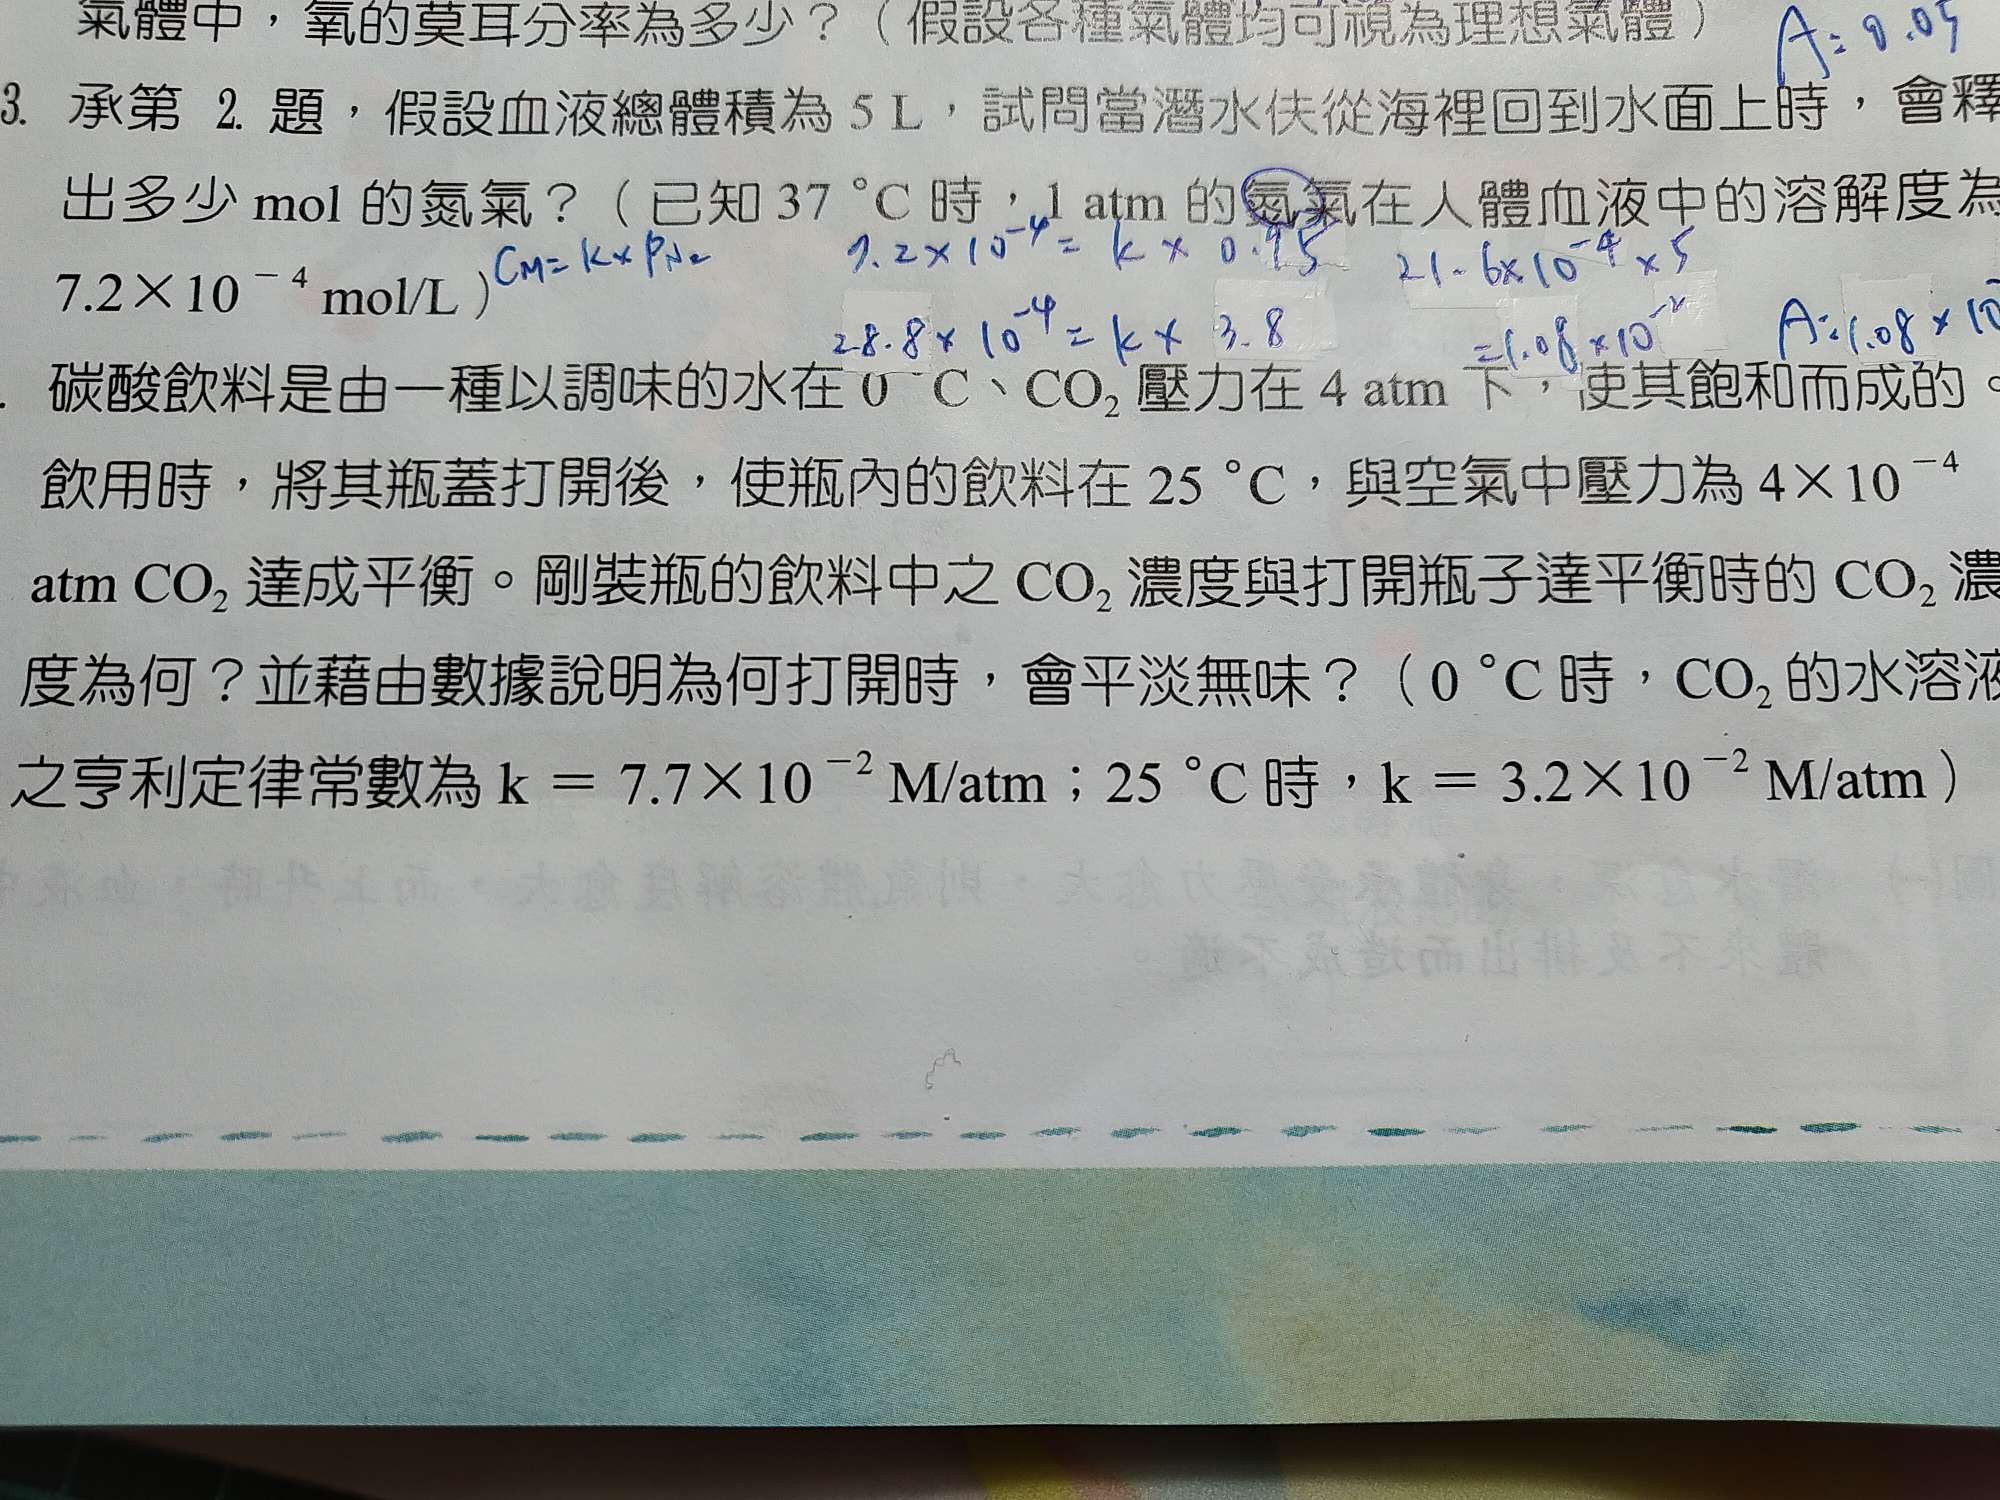 氣體中，氧的莫耳分率為多少？（假設各種氣體均可視為理想氣體）
A=0.05
3. 承第 2. 題，假設血液總體積為 5 L，試問當潛水伕從海裡回到水面上時，會釋
出多少 mol 的氮氣？（已知 37 °C 時，1 atm 的氮氣在人體血液中的溶解度為
7.2×10⁻⁴ mol/L）
CM=k×PN₂
7.2×10⁻⁴=k×0.95
21.6×10⁻⁴×5
28.8×10⁻⁴=k×3.8
=1.08×10⁻²
A=1.08×10
. 碳酸飲料是由一種以調味的水在 0 °C、CO₂ 壓力在 4 atm 下，使其飽和而成的。
飲用時，將其瓶蓋打開後，使瓶內的飲料在 25 °C，與空氣中壓力為 4×10⁻⁴
atm CO₂ 達成平衡。剛裝瓶的飲料中之 CO₂ 濃度與打開瓶子達平衡時的 CO₂ 濃
度為何？並藉由數據說明為何打開時，會平淡無味？（0 °C 時，CO₂ 的水溶液
之亨利定律常數為 k = 7.7×10⁻² M/atm；25 °C 時，k = 3.2×10⁻² M/atm）